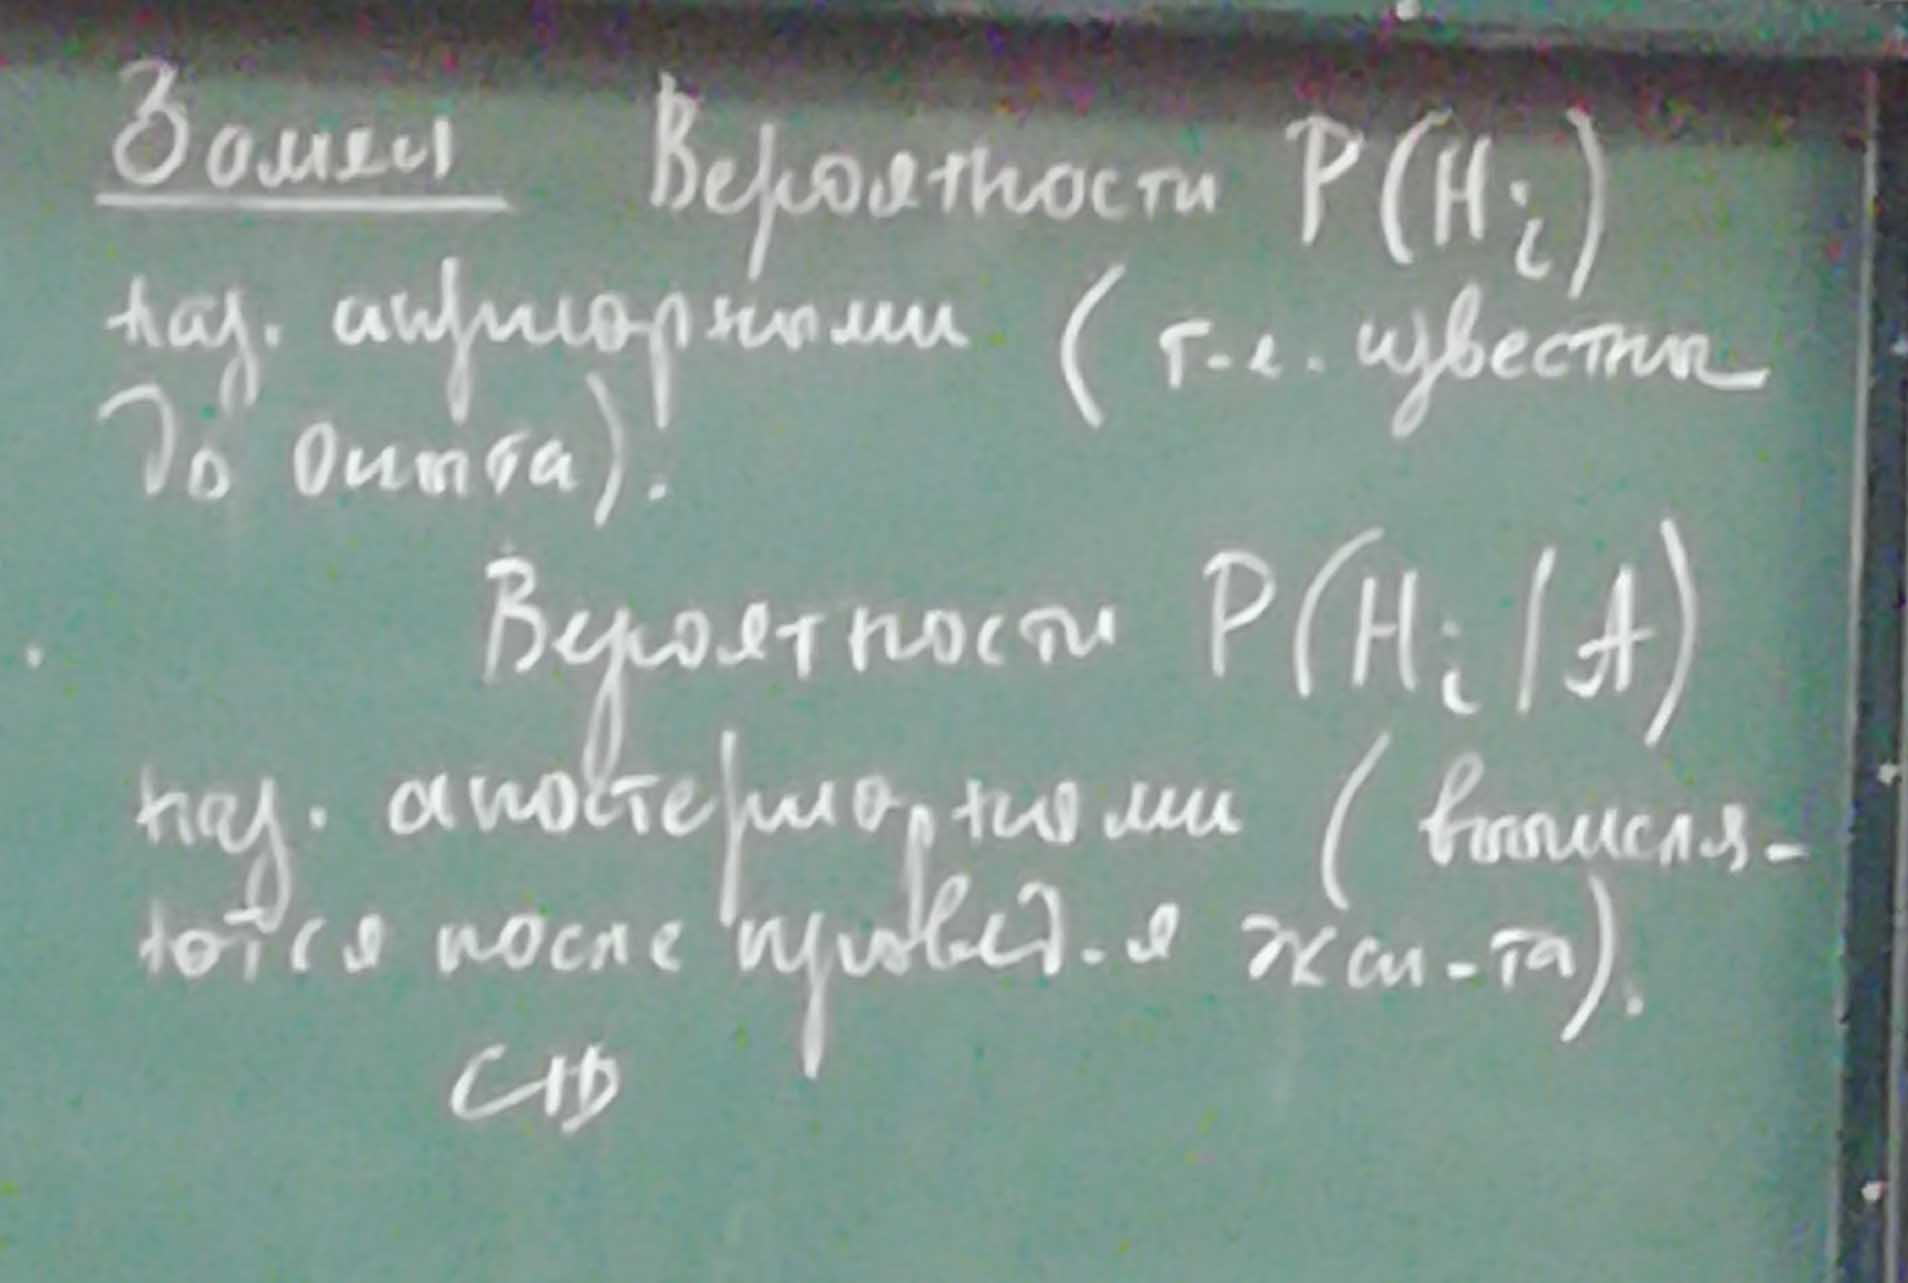 Замеч Вероятности P(H_i)
наз. априорными (т.е. известны
до опыта).
Вероятности P(H_i/A)
наз. апостериорными (вычисля-
ются после провед-я эксп-та).